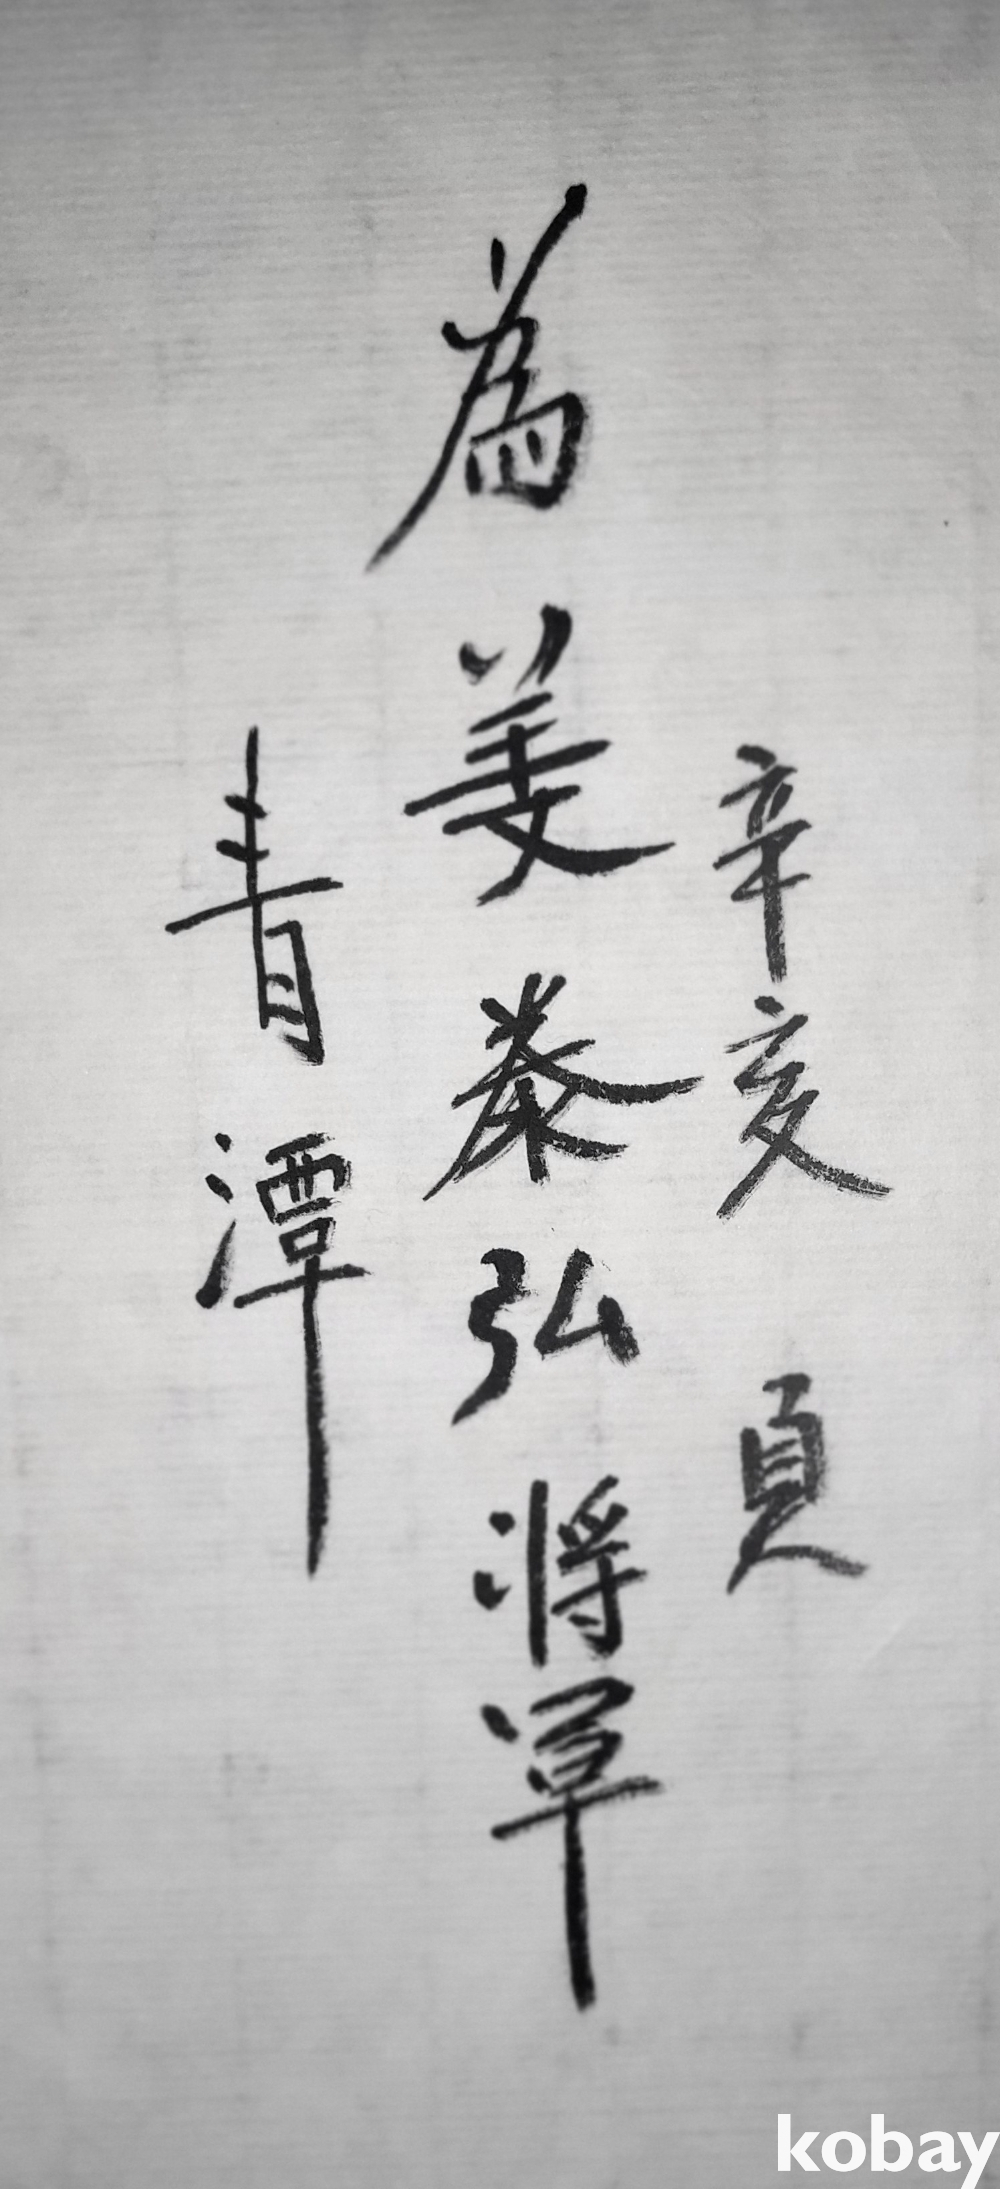 辛亥 夏
為姜泰弘將軍
青潭
kobay